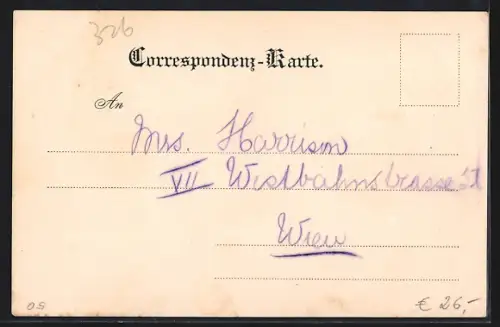 326
Correspondenz-Karte.
An
Mrs. Harrison
VII Westbahnstrasse
Wien
€ 26,-